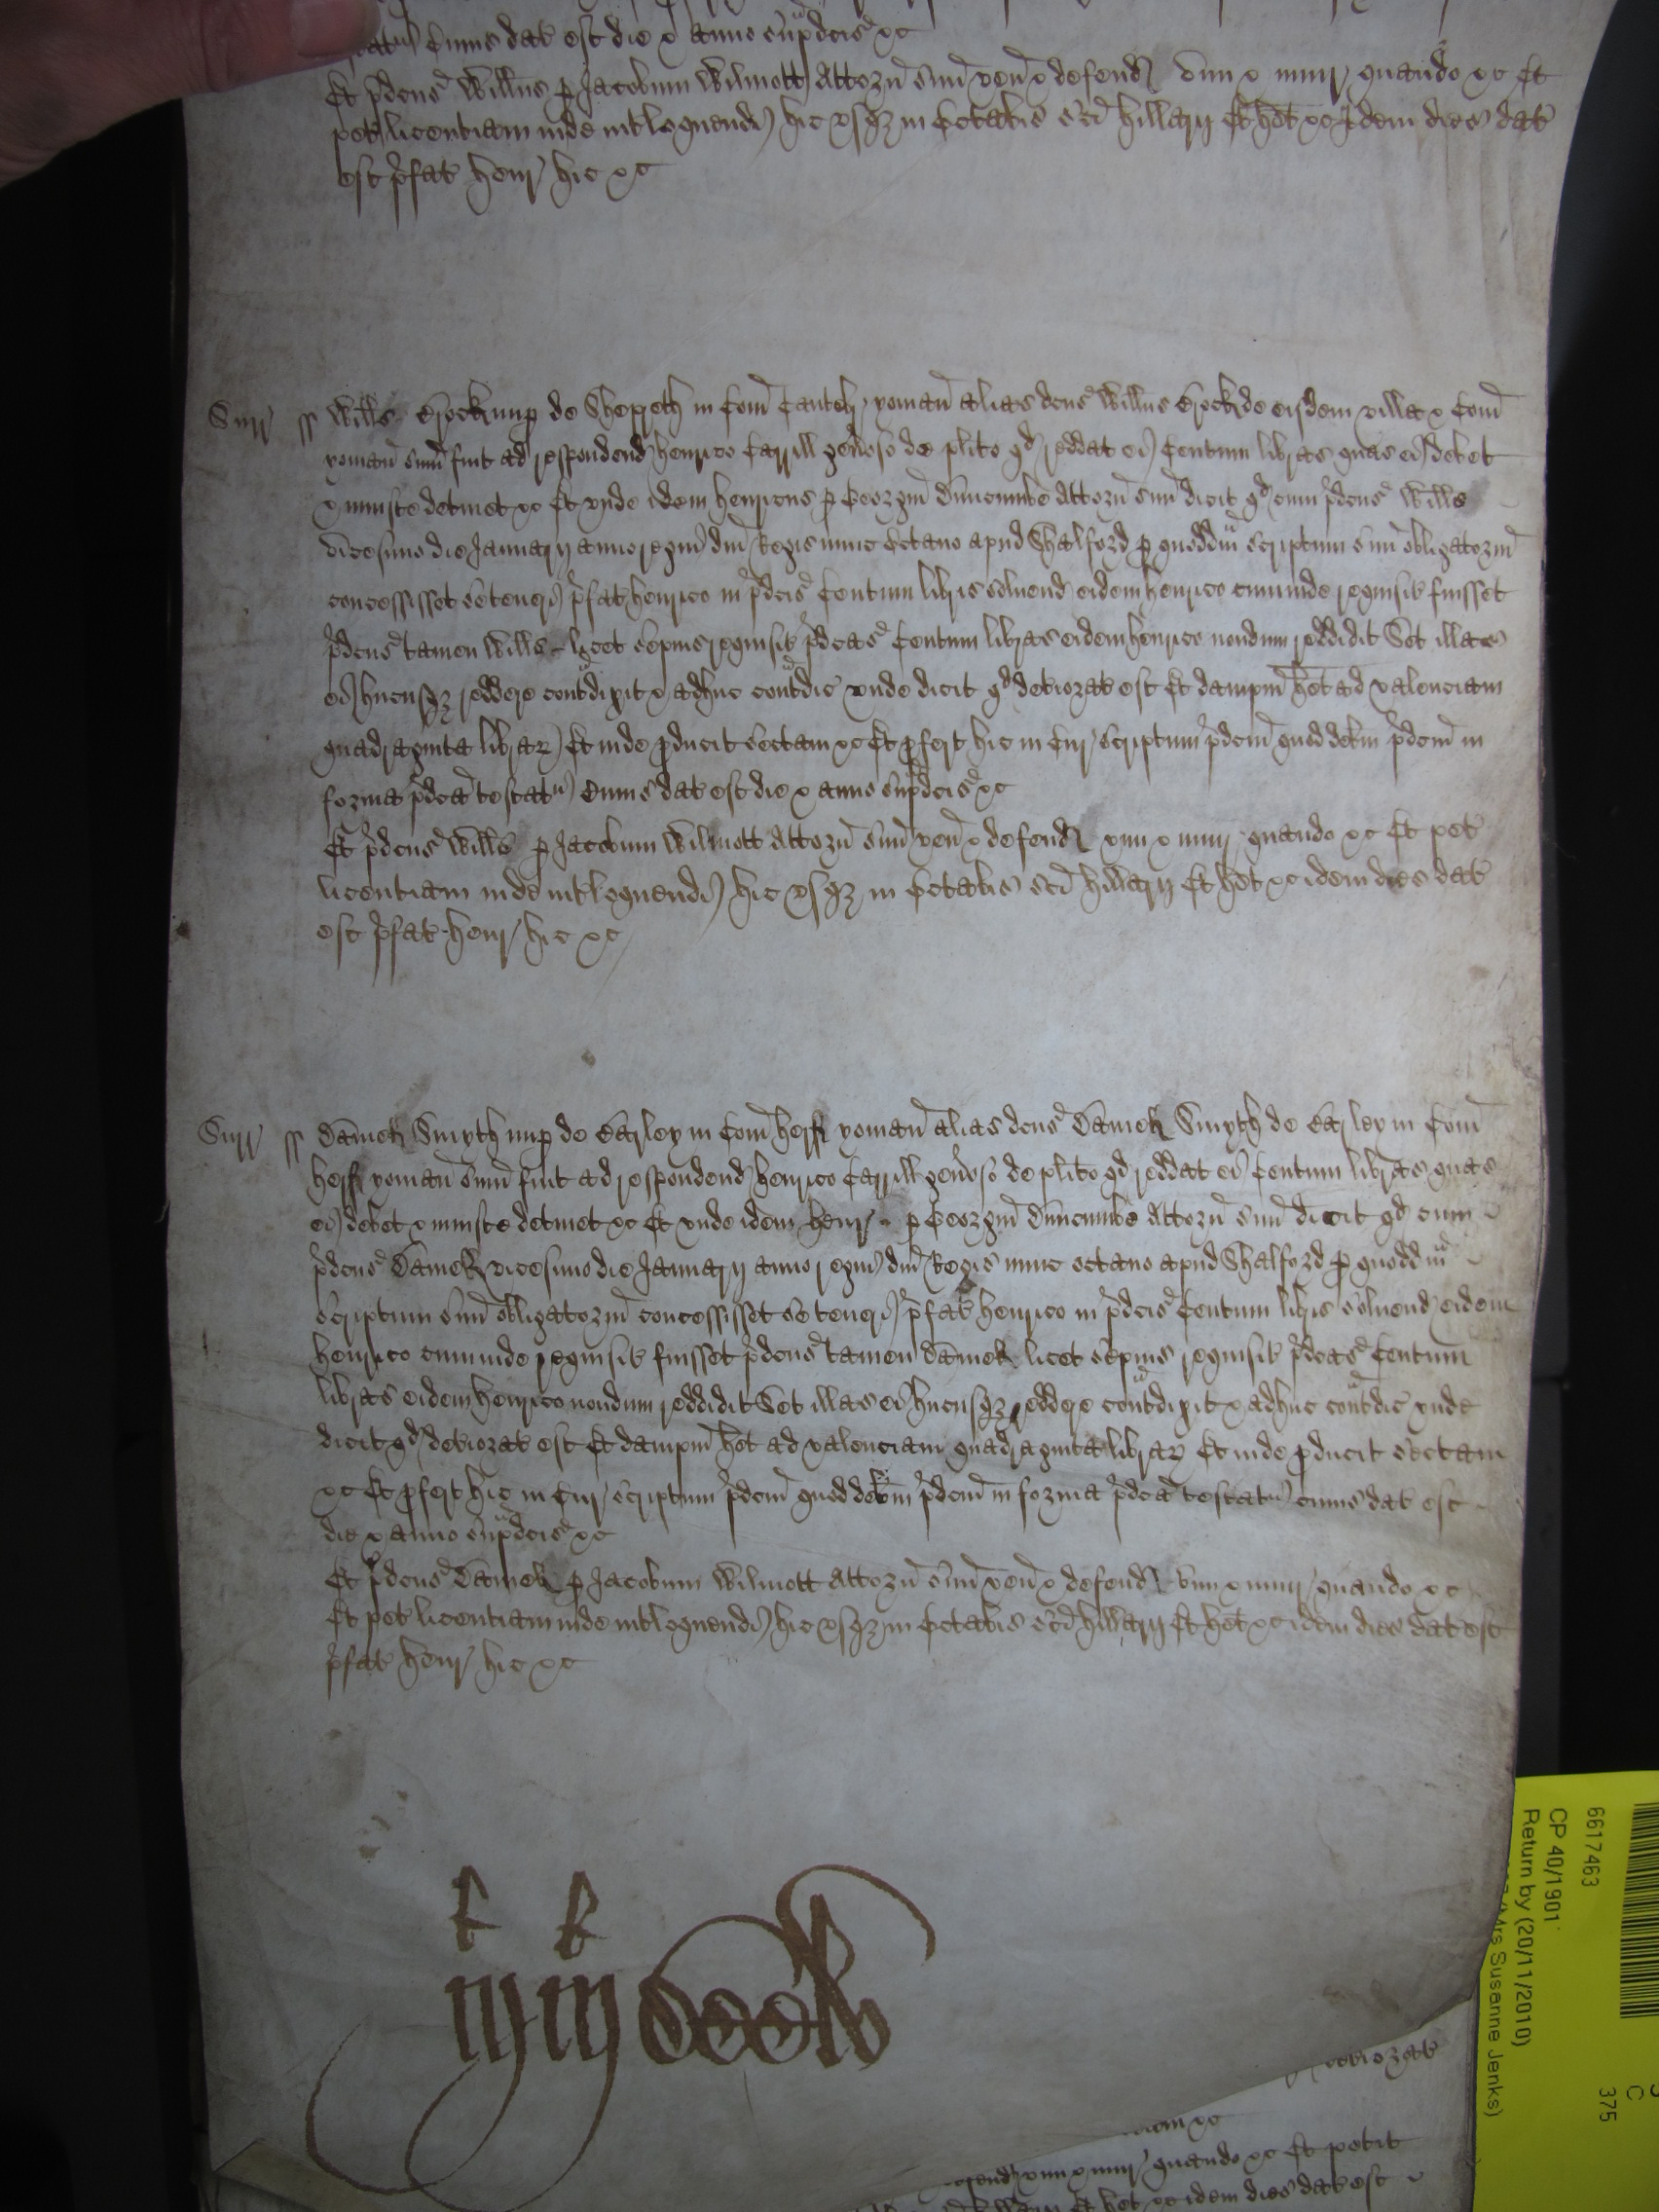 cuius dat est die & anno supradcis &c
Et pdcus Willus p Jacobum Wilmott Attorn suu ven & defend vim & iniur quando &c Et
pet licentiam inde intloquendi hic usqz in Octabis sci Hillarij Et het &c Idem dies dat
est pfat Henr hic &c
Surr ss Wills nup de in Com Canteb yoman alias dcus Willus de eisdem villa & Com
yoman sum fuit ad respondend Henrico Carrill genoso de plito qd reddat ei Centum libras quas ei debet
& iniuste detinet &c Et unde idem Henricus p Georgiu Attorn suu dicit qd cum pdcus Wills
vicesimo die Januarij anno regni dni Regis nunc octavo apud Shalford p quoddam scriptum suu obligatoriu
concessisset se teneri pfat Henrico in pdcis Centum libris solvend eidem Henrico cum inde requisit fuisset
pdcus tamen Wills licet sepius requisit pdcas Centum libras eidem Henrico nondum reddidit Set illas
ei hucusqz reddere contradixit & adhuc contradic unde dicit qd deteriorat est Et dampnu het ad valenciam
quadraginta librar Et inde producit sectam &c Et profert hic in Cur scriptum pdcm quod debitm pdcm in
forma pdca testatr Cuius dat est die & anno supradcis &c
Et pdcus Wills p Jacobum Wilmott Attorn suu ven & defend vim & iniur quando &c Et pet
licentiam inde intloquendi hic usqz in Octabis sci Hillarij Et het &c idem dies dat
est pfat Henr hic &c
Surr ss Daniel Smyth nup de Barley in Com Hertf yoman alias dcus Daniel Smyth de Barley in Com
Hertf yoman sum fuit ad respondend Henrico Carrill genoso de plito qd reddat ei Centum libras quas
ei debet & iniuste detinet &c Et unde idem Henr p Georgiu Attorn suu dicit qd cum
pdcus Daniel vicesimo die Januarij anno regni dni Regis nunc octavo apud Shalford p quoddam
scriptum suu obligatoriu concessisset se teneri pfat Henrico in pdcis Centum libris solvend eidem
Henrico cum inde requisit fuisset pdcus tamen Daniel licet sepius requisit pdcas Centum
libras eidem Henrico nondum reddidit Set illas ei hucusqz reddere contradixit & adhuc contradic unde
dicit qd deteriorat est Et dampnu het ad valenciam quadraginta librar Et inde producit sectam
&c Et profert hic in Cur scriptum pdcm quod debitm pdcm in forma pdca testatr cuius dat est
die & anno supradcis &c
Et pdcus Daniel p Jacobum Wilmott Attorn suu ven & defend vim & iniur quando &c
Et pet licentiam inde intloquendi hic usqz in Octabis sci Hillarij Et het &c idem dies dat est
pfat Henr hic &c
deteriorat
quando &c Et petit
Et het &c idem dies dat est
6617463
CP 40/1901
Return by (20/11/2010)
Mrs Susanne Jenks)
C
375